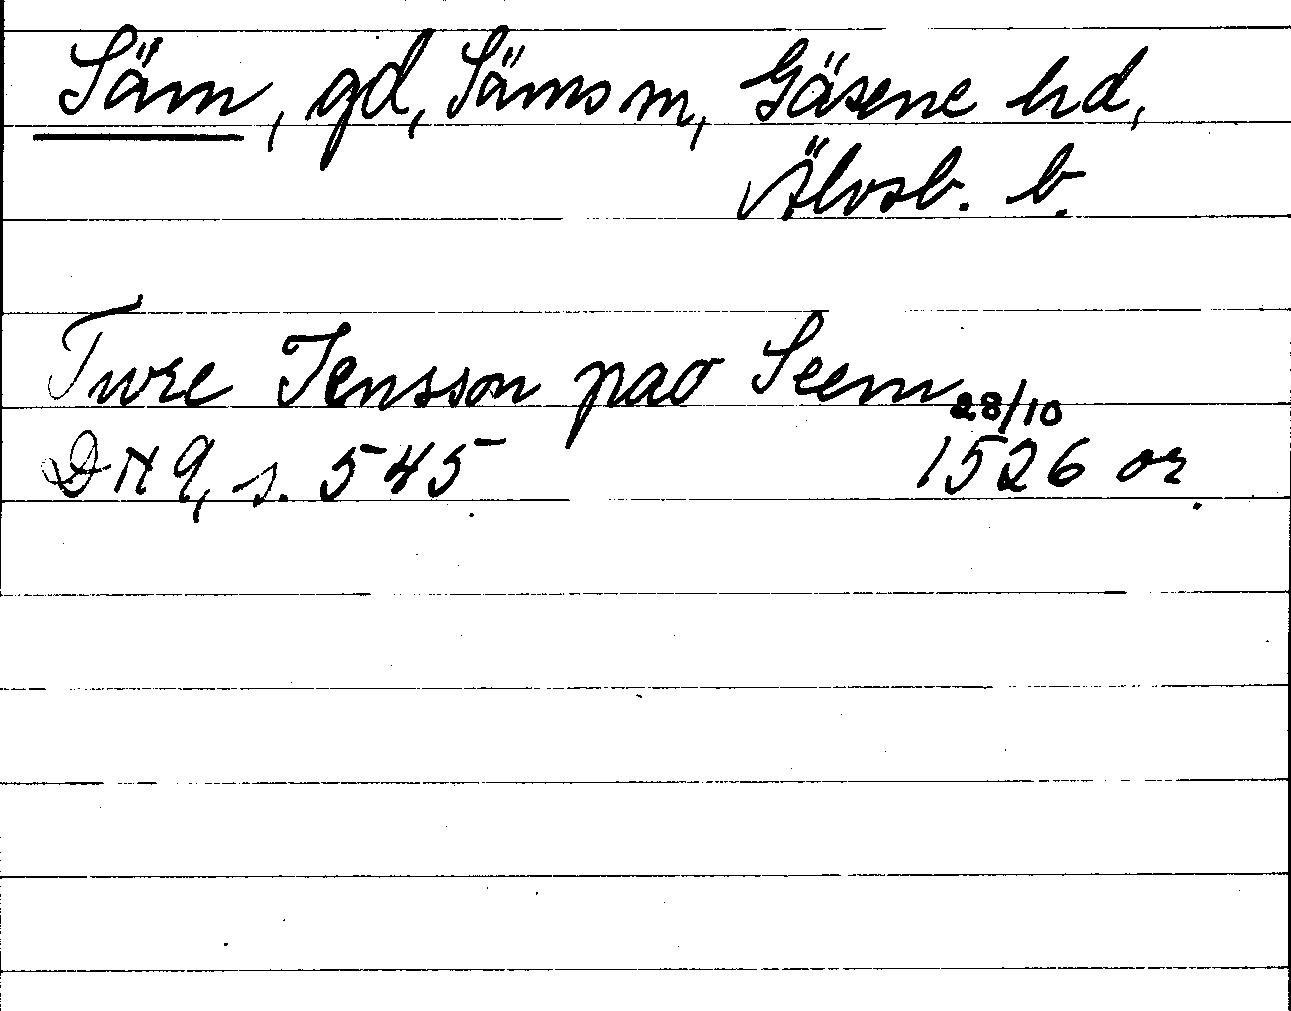 Säm, gd, Säms sn, Gäsene hd,
Älvsb. l.
Twre Jensson pao Seem
DN 9, s. 545 28/10 1526 or.